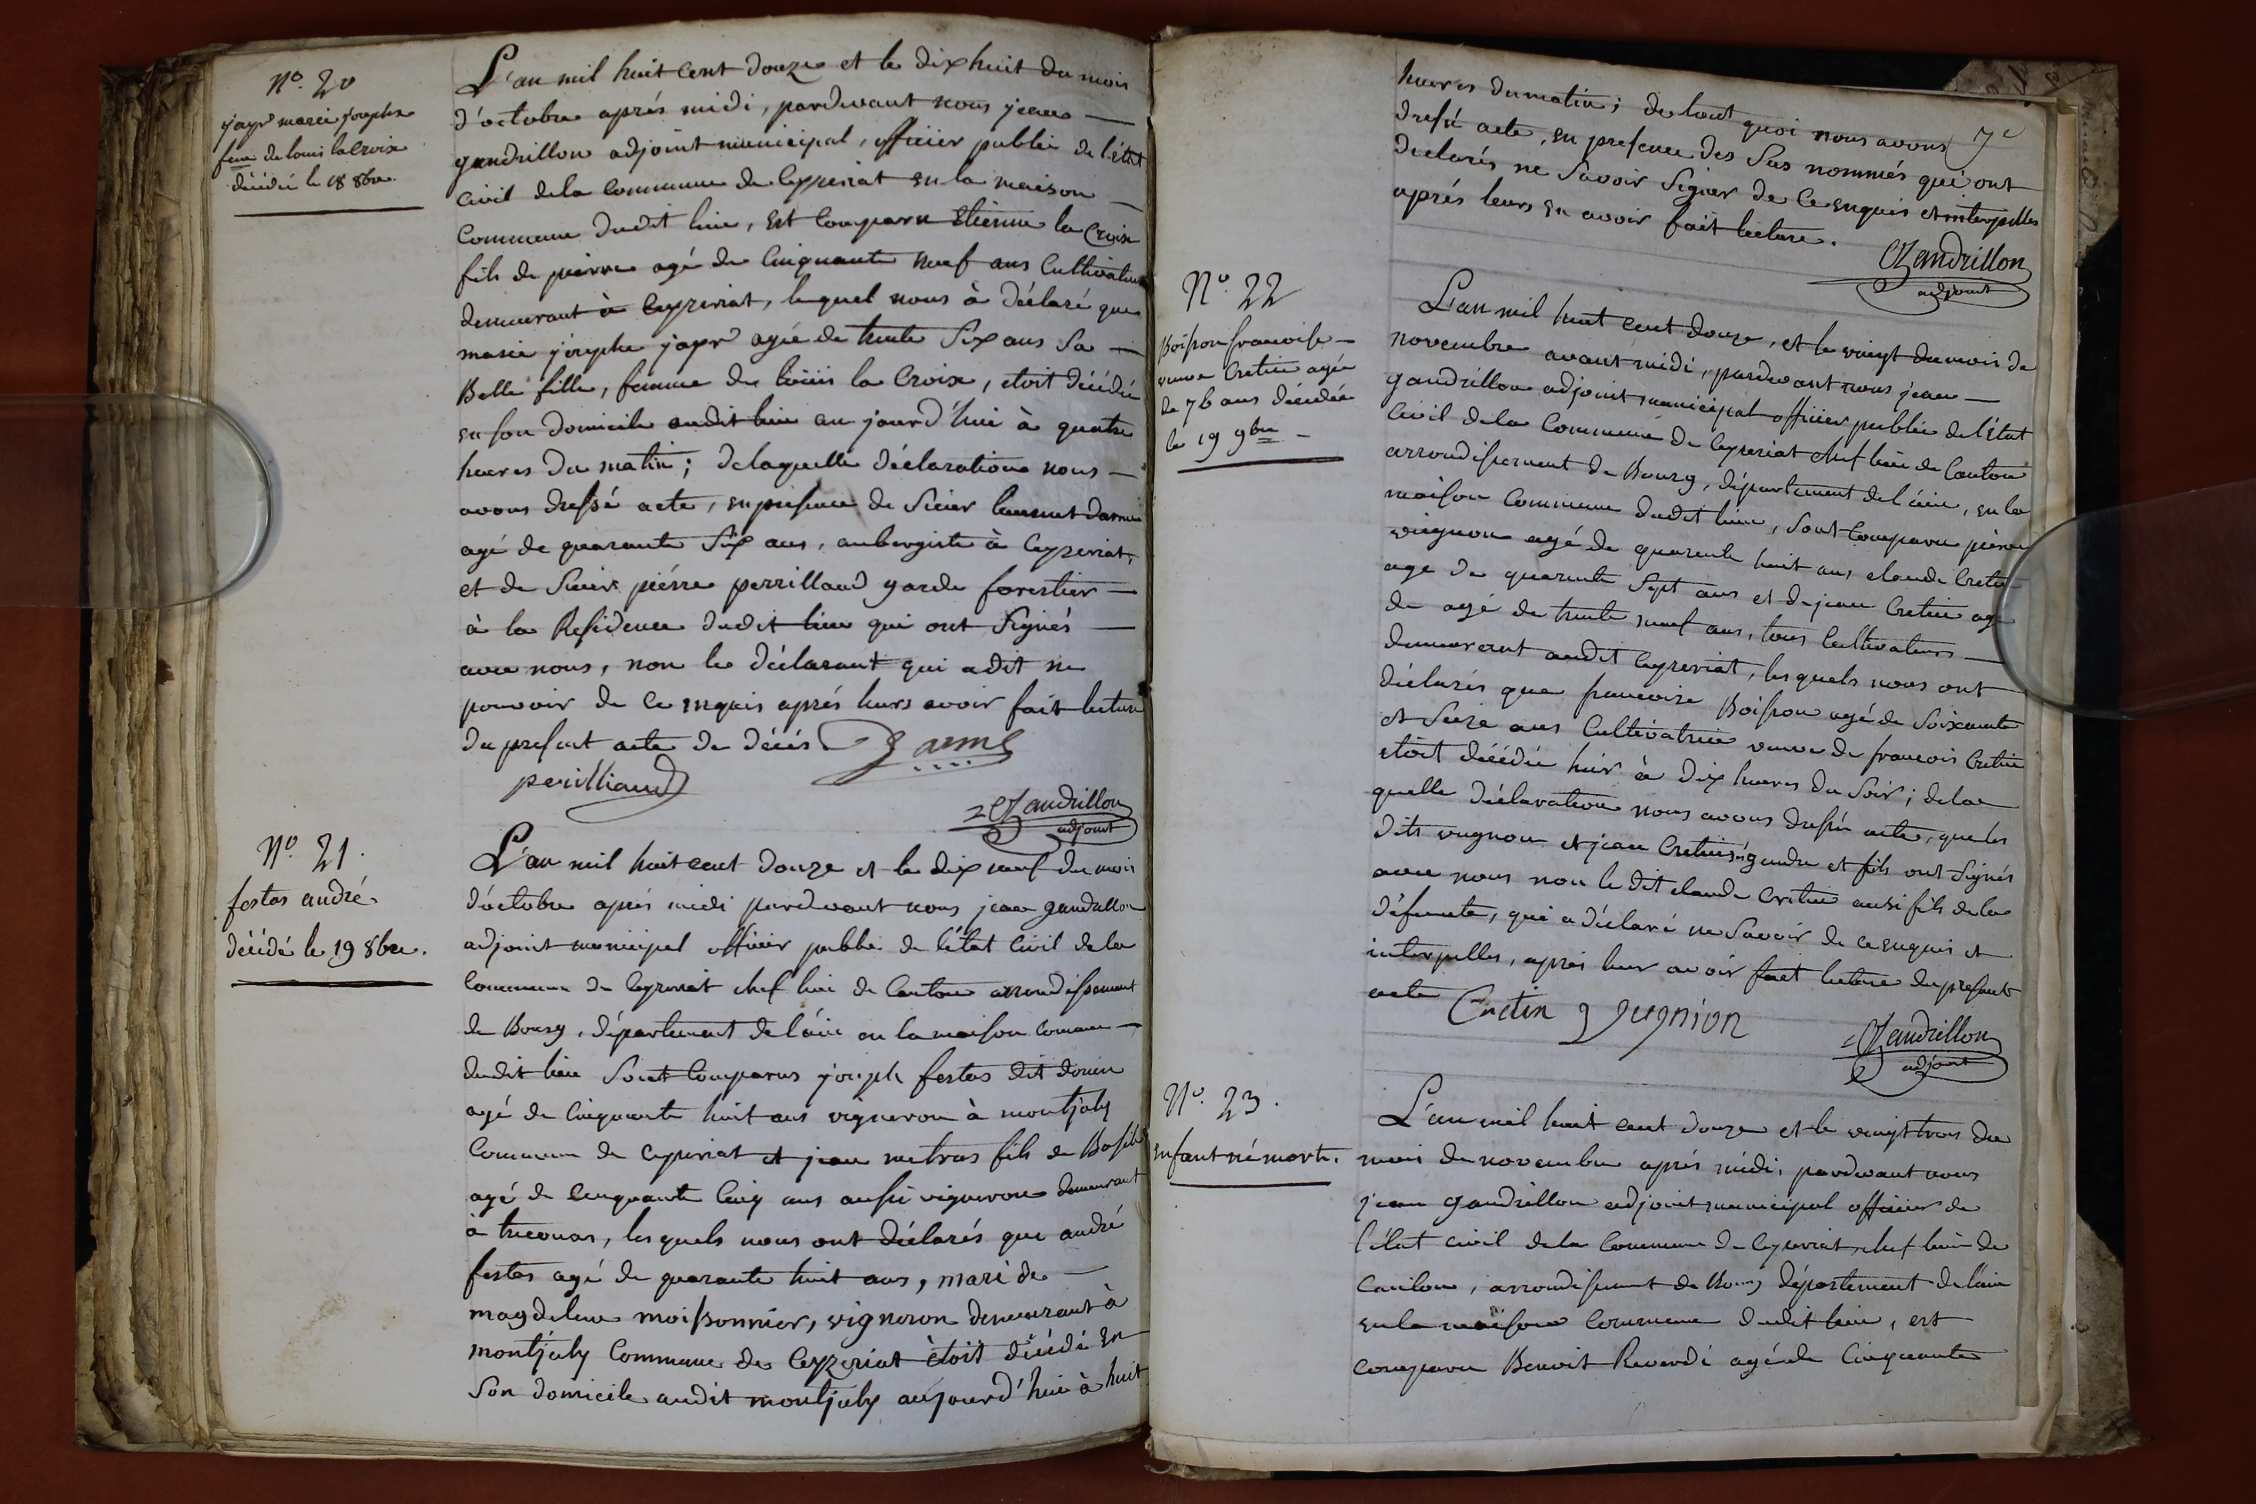 N.º 20
jayr marie josephe
feme de louis la Croix
décédée le 18 8bre.
L'an mil huit cent douze et le dix huit du mois
d'octobre aprés midi, pardevant nous jean —
gandrillon adjoint municipal, officier public de l'état
civil de la Commune de Ceyzeriat en la maison —
Commune dudit lieu, est Comparu Etienne la Croix
fils de pierre agé de Cinquante neuf ans Cultivateur
demeurant à Ceyzeriat, lequel nous à déclaré que
marie josephe jayr agée de trente Six ans Sa —
Belle fille, femme de loüis la Croix, etoit décédée
en son domicile audit lieu au jourd'hui à quatre
heures du matin ; delaquelle déclaration nous —
avons dressé acte, en presence de Sieur laurent Darme
agé de quarante Six ans, aubergiste à Ceyzeriat,
et de Sieur piérre perrilland garde forestier —
à la Residence dudit lieu qui ont Signés —
avec nous, non le déclarant qui a dit ne
pouvoir de ce enquis aprés leurs avoir fait lecture
du present acte de décés. Darme
perilliand
Gandrillon
adjoint
N.º 21.
festas andré.
décédé le 19 8bre.
L'an mil huit cent douze et le dix neuf du mois
d'octobre aprés midi pardevant nous jean gandrillon
adjoint municipal officier public de l'état Civil de la
Commune de Ceyzeriat chef lieu de Canton arrondissement
de Bourg, département de l'ain en la maison comune —
dudit lieu Sont Comparus joseph festas dit
agé de Cinquante huit ans vigneron à montjuly
Commune de Ceyzeriat et jean metras fils de Basile
agé de Cinquante Cinq ans aussi vigneron demeurant
à treconas, les quels nous ont déclarés que andré
festas agé de quarante huit ans, mari de —
magdeleine moissonnier, vigneron demeurant à
montjuly Commune de Ceyzeriat étoit décédé en
Son domicile audit montjuly aujourd'hui à huit
7e
heures du matin ; de tout quoi nous avons
dressé acte, en presence des Sus nommés qui ont
declarés ne Savoir Signer de ce enquis et interpellés
aprés leurs en avoir fait lecture.
Gandrillon
adjoint
N.º 22
Boisson francoise —
veuve Cretin agée
de 76 ans décédée
le 19 9bre —
L'an mil huit cent douze, et le vingt du mois de
novembre avant midi, pardevant nous jean —
gandrillon adjoint municipal officier public de l'état
Civil de la Commune de Ceyzeriat chef lieu de Canton
arrondissement de Bourg, département de l'ain, en la
maison Commune dudit lieu, Sont Comparu pierre
vugnon agé de quarante huit ans, claude Cretin
age de quarante Sept ans et de jean Cretin age
de agé de trente neuf ans, tous Cultivateurs —
demeurant audit Ceyzeriat, lesquels nous ont
déclarés que francoise Boisson agé de Soixante
et Seize ans Cultivatrice veuve de francois Cretin
etoit décédée hier à dix heures du Soir ; de la
quelle déclaration nous avons dressé acte, que les
dits vugnon et jean Cretin, gendre et fils ont Signés
avec nous non le dit claude Cretin aussi fils de la
défunte, qui a déclaré ne Savoir de ce enquis et
interpellés, aprés leur avoir fait lecture du present
acte Cretin
Gandrillon
adjoint
N.º 23.
Enfant né mort.
L'an mil huit cent douze et le vingt trois du
mois de novembre aprés midi, pardevant nous
jean gandrillon adjoint municipal officier de
l'état civil de la Commune de Ceyzeriat, chef lieu de
Canton, arrondissement de Bourg département de l'ain
en la maison Commune dudit lieu, est
comparu Benoit Reverdi agé de Cinquante